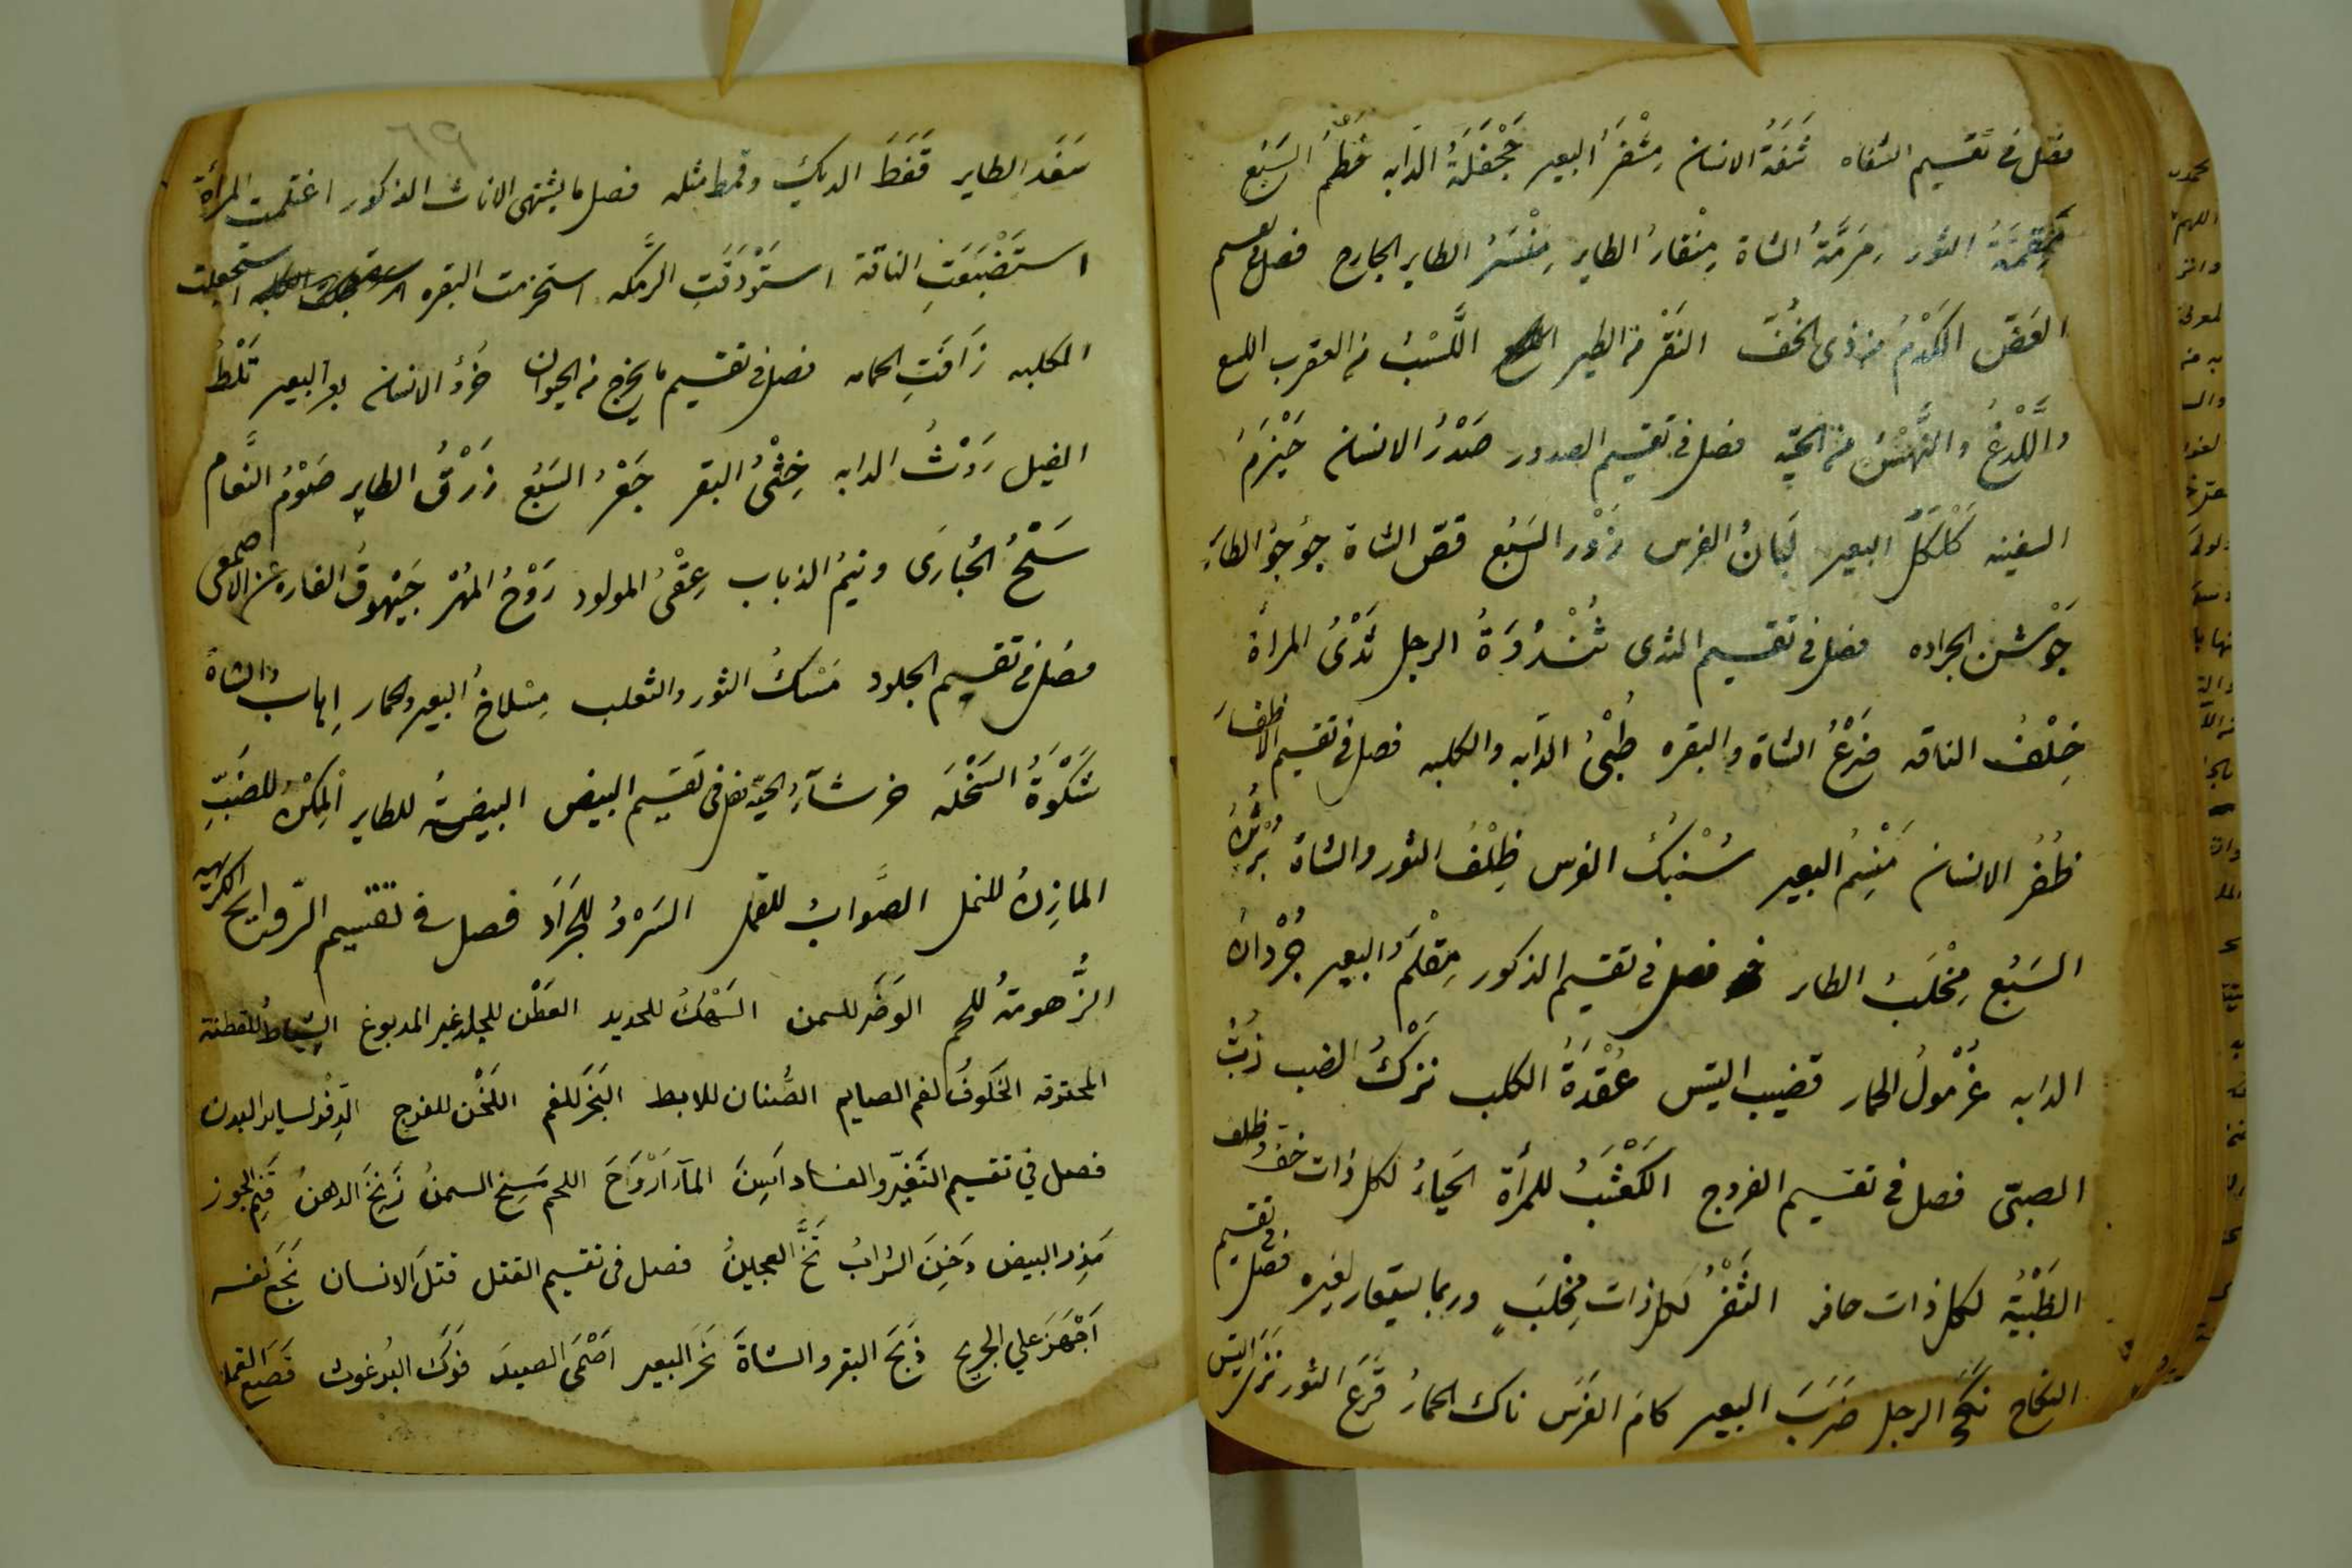 فصل في تقسيم الشفاه شَفَةُ الانسان مِشْفَرُ البعير جَحْفَلَةُ الدابه خَطْمُ السَبُع
مِقَمَّةُ الثور مَرَمَّةُ الشاة مِنْقارُ الطاير مِنْسَرُ الطاير الجارح فصل في تقسيم
العَضّ الكَدْمُ من ذي الخُفّ النَقْر من الطير اللَّسْبُ من العقرب اللسع
واللَّدْغُ والنَّهْشُ من الحيّه فصل في تقسيم الصدور صَدْرُ الانسان حَيْزَمُ
السفينه كَلْكَلُ البعير لَبانُ الفرس زَوْر السَبُع قصّ الشاة جُؤجُؤ الطاير
جَوْشن الجراده فصل في تقسيم الثدى ثُنْدُوَةُ الرجل ثَدْىُ المرأة
خِلْفُ الناقه ضَرْعُ الشاة والبقره طُبْىُ الدابه والكلبه فصل في تقسيم الاظفار
ظُفُر الانسان مَنْسِمُ البعير سُنْبُكُ الفرس ظِلْفُ الثور والشاة بُرْثُنُ
السَبُع مِخْلَبُ الطاير فصل في تقسيم الذكور مِقْلَمُ البعير جُرْدانُ
الدابه غُرْمولُ الحمار قضيب التيس عُقْدَةُ الكلب نَزْكُ الضب زُبّ
الصبىّ فصل في تقسيم الفروج الكَعْثَبُ للمرأة الحَياءُ لكل ذات خفّ وظلف
الظَبْيَةُ لكل ذات حافر الثَفْرُ لكل ذات مِخْلَبٍ وربما يستعار لغيره فصل في تقسيم
النكاح نَكَحَ الرجل ضَرَبَ البعير كامَ الفَرَس ناك الحمارُ قَرَعَ الثور نَزَى التيس
٦٩
سَفَد الطاير قَفَطَ الديك وقمط مثله فصل ما يشتهى الاناث الذكور اغتلمت المرأة
استَضْبَعَتِ الناقة استَوْدَقَتِ الرمكه استحرمت البقره استجعلت
الكلبه زَافَتِ الحمامه فصل في تقسيم ما يخرج من الحيوان خُرْءُ الانسان بعر البعير ثَلْطُ
الفيل رَوْثُ الدابه خِثْىُ البقر جَعْرُ السَبُع زَرْقُ الطاير صَوْمُ النَّعام
سَلْحُ الحُبارَى ونيمُ الذباب عِقْىُ المولود رَدْجُ المُهْر جَيْهوقُ الفاره عن الاصمعى
فصل في تقسيم الجلود مَسْكُ الثور والثعلب مِسْلاخُ البعير والحمار إِهاب الشاة
شَكْوَةُ السَخْلَه خرشآءُ الحيّه فصل في تقسيم البيض البيضة للطاير المِكْنُ للضَبّ
المازِنُ للنمل الصُّوابُ للقمل السَرْؤُ للجَرَاد فصل في تقسيم الرّوايح الكريهه
الزُّهومةُ للحم الوَضَر للسمن السَهَكُ للحديد العَطَن للجلد غير المدبوغ الشِياطُ للقطنة
المحترقه الخَلوفُ لفم الصايم الصُّنان للابط البَخَر للفم اللَخَن للفرج الدفْر لساير البدن
فصل في تقسيم التَغيّر والفساد اَسِنَ المآء اَرْوَحَ اللحم سَنِخَ السمنُ زَنِخَ الدهنُ قَنِم الجوز
مَذِر البيض دَخِنَ الشرابُ نَخَّ العجينُ فصل في تقسيم القتل قتلَ الانسان بَخَع نفسه
اَجْهَزَ علي الجريح ذَبَحَ البقر والشاةَ نَحَر البعير اَصْمَى الصيدَ فَركَ البُرغوث قَصَع القمله